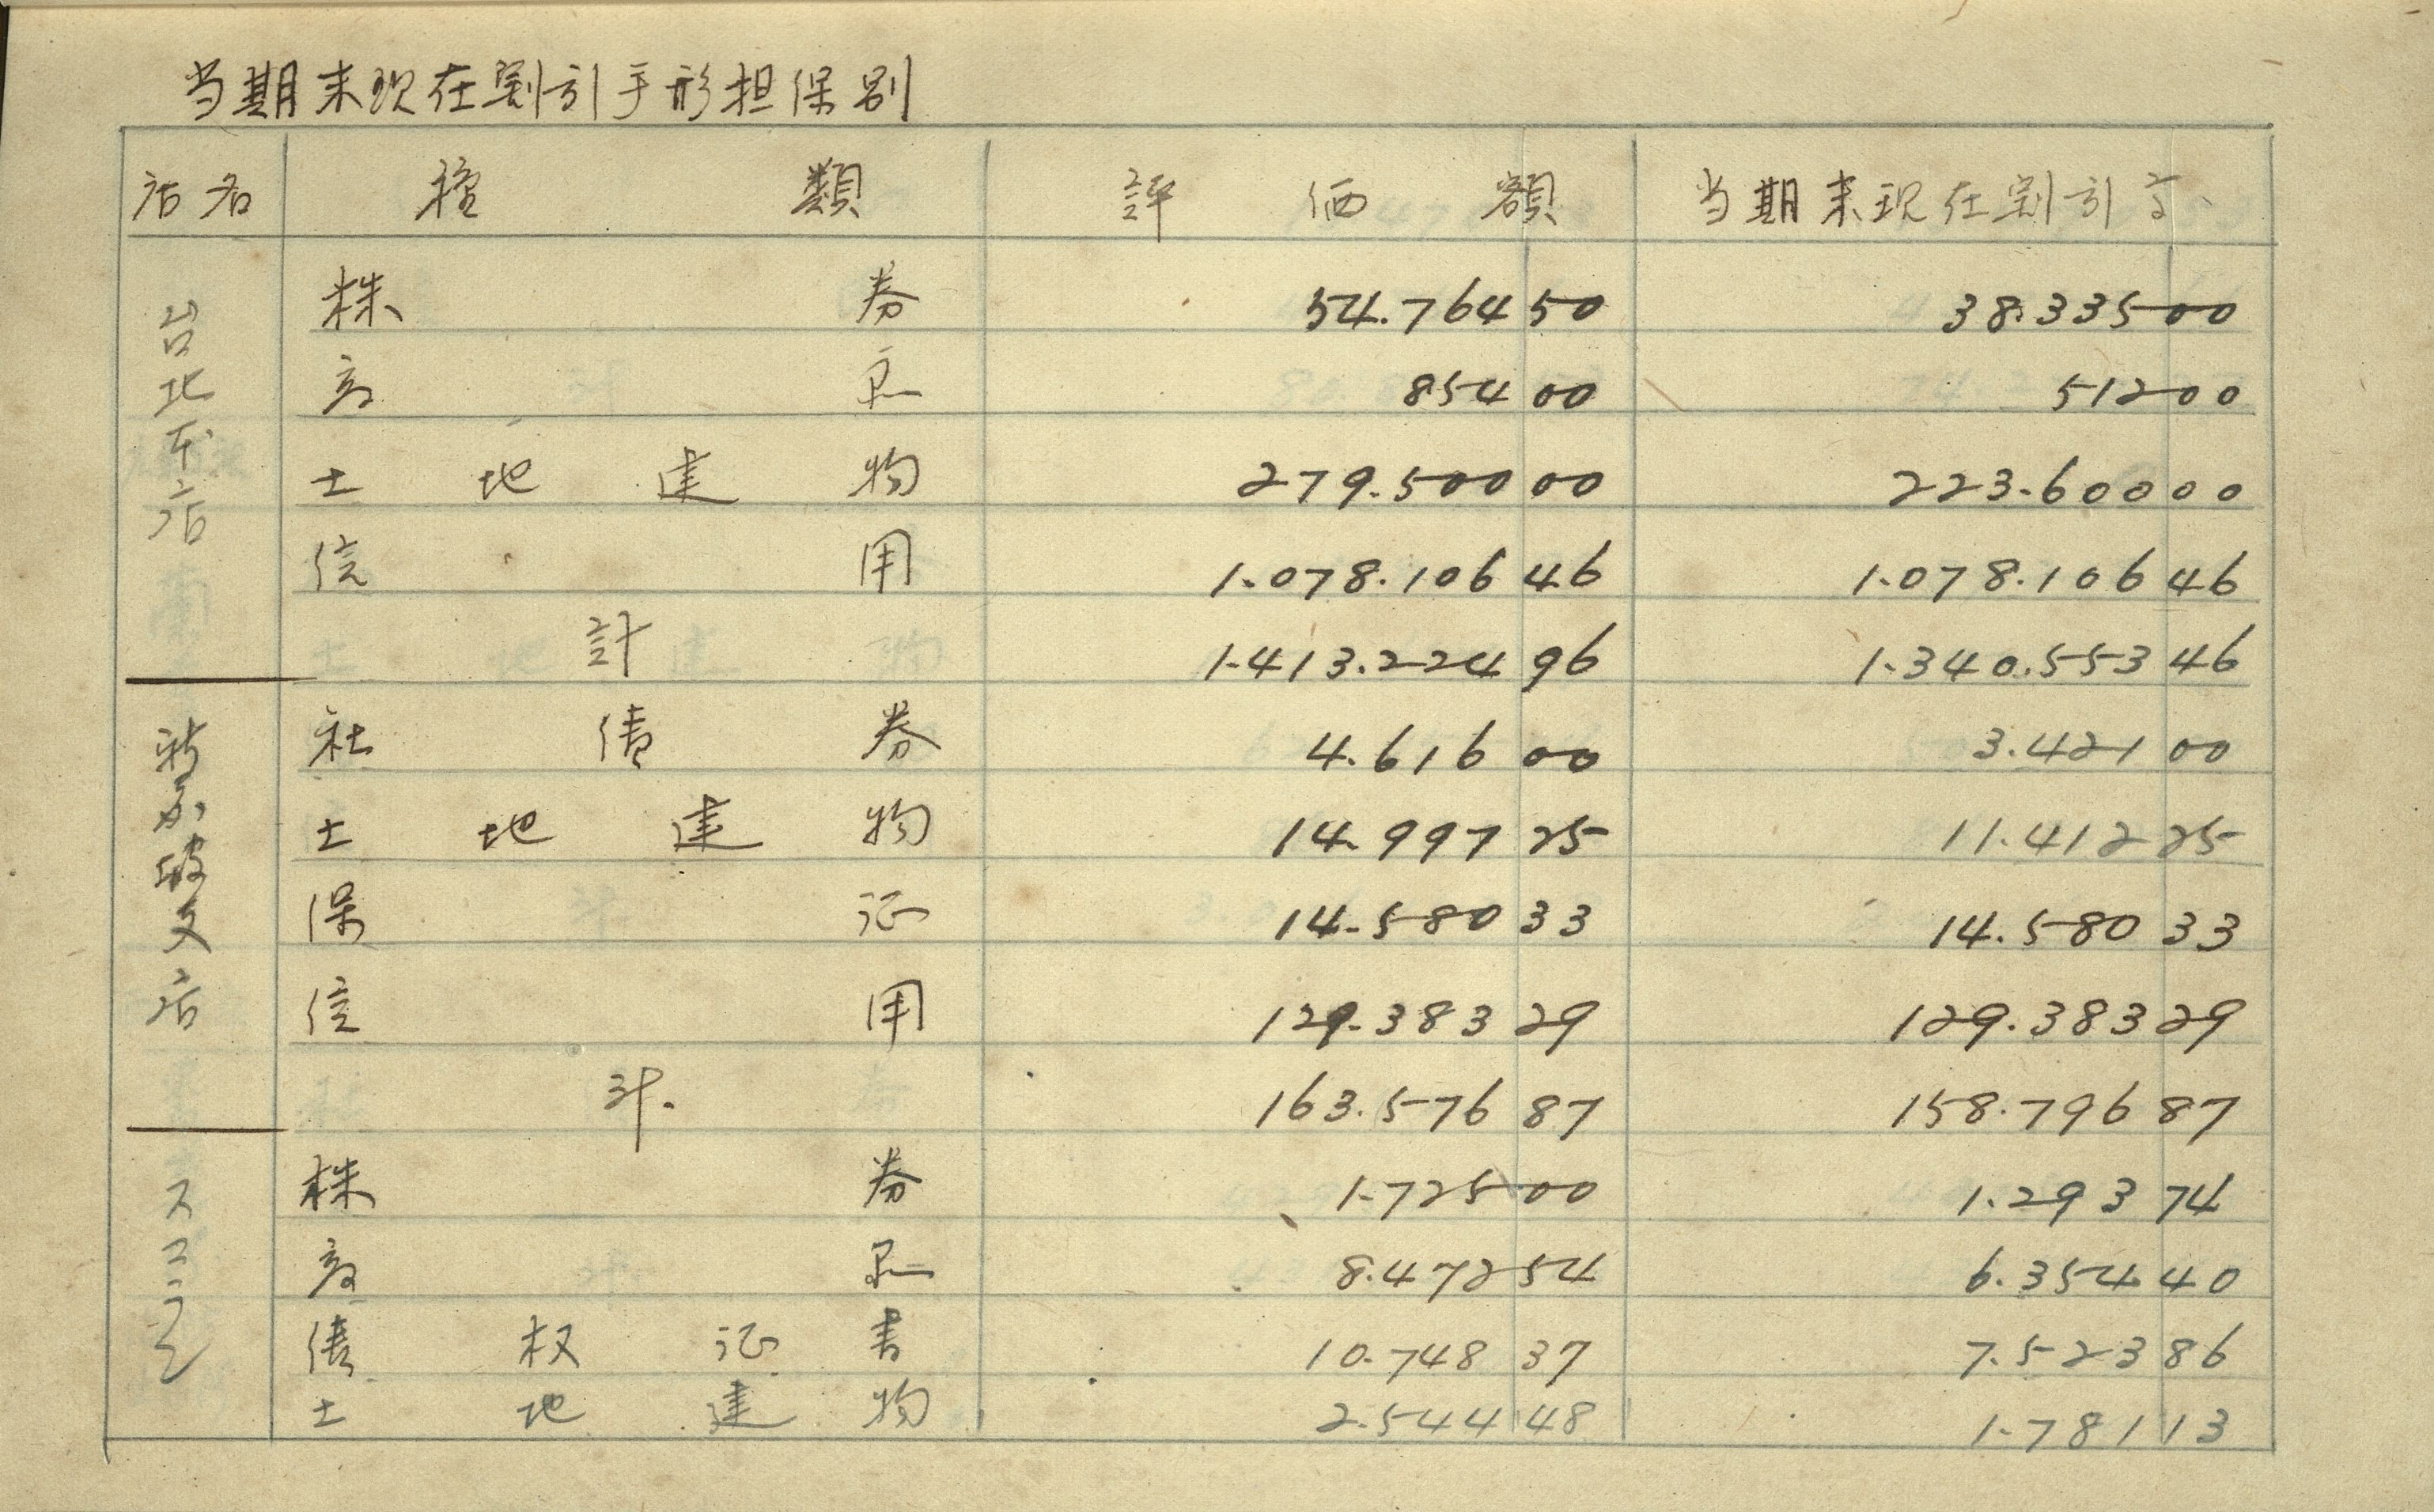 当期末現在割引手形担保別
店名 種類 評価額 当期末現在割引高
台北本店
株券 54.764 50 38.335 00
商品 854 00 512 00
土地建物 279.500 00 223.600 00
信用 1.078.106 46 1.078.106 46
計 1.413.224 96 1.340.553 46
新加坡支店
社債券 4.616 00 3.421 00
土地建物 14.997 25 11.412 25
保証 14.580 33 14.580 33
信用 129.383 29 129.383 29
計 163.576 87 158.796 87
株券 1.725 00 1.293 74
商品 8.472 54 6.354 40
債权証書 10.748 37 7.523 86
土地建物 2.544 48 1.781 13